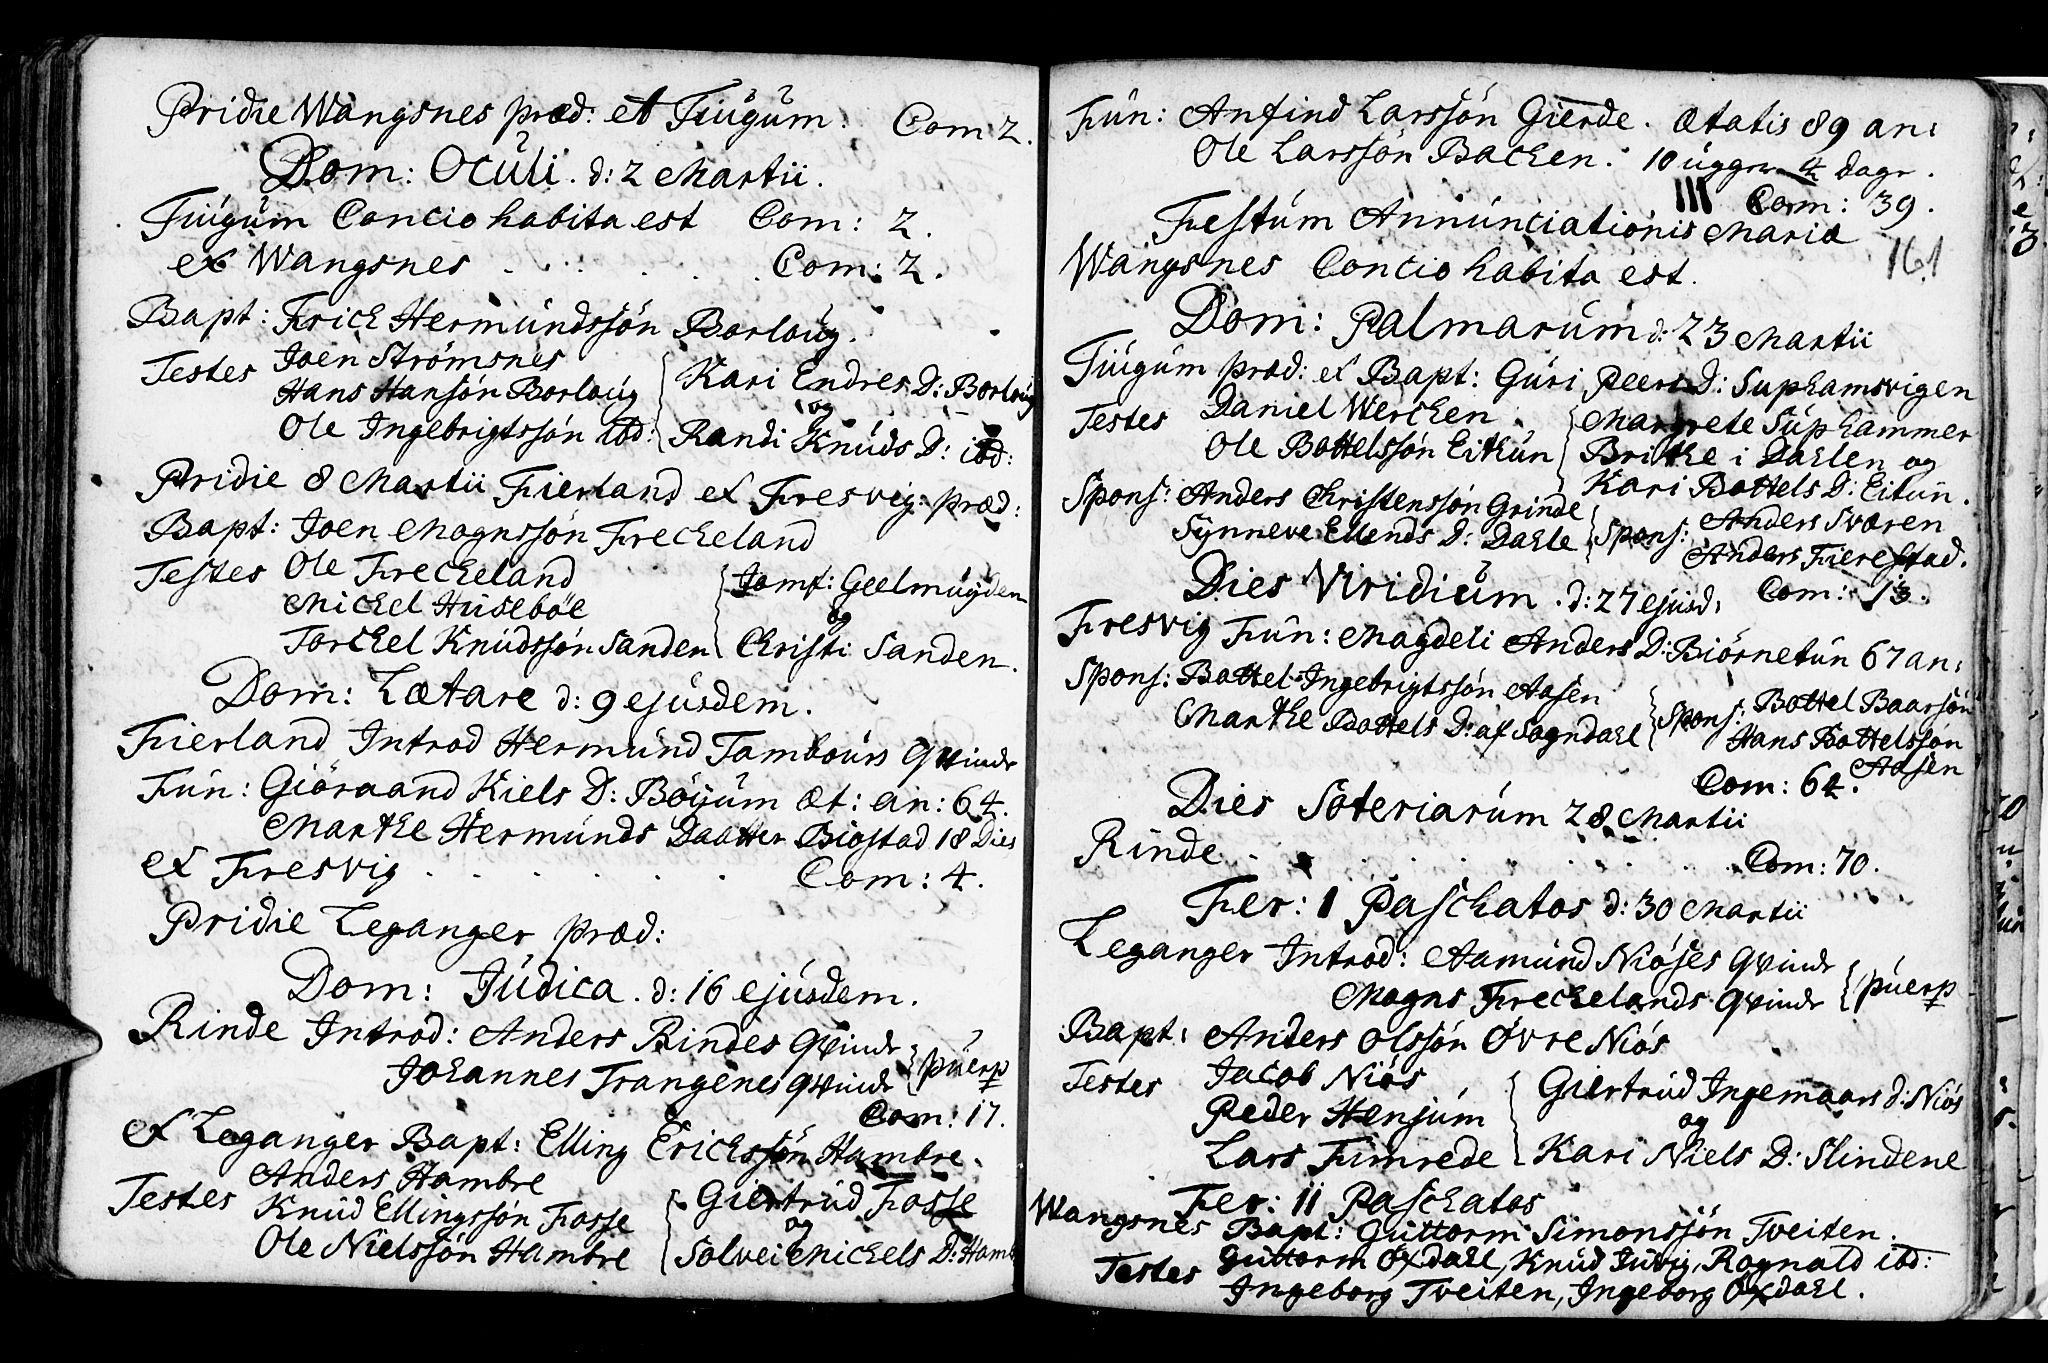 Pridie Wangsnes præd: et Fiúgúm. Com 2.
Dom: Oculi. d: 2 Martii.
Fiúgúm Concio habita est Com: 2.
et Wangsnes . . . . . Com: 2.
Bapt: Erich Hermúndssøn Borloúg.
Testes Joen Strömsnes
Hans Hansøn Borloúg { Kari Endres D: Borloúg
og
Ole Ingebrigtssøn ibd: Randi Knúds D: ibd:
Pridie 8 Martii Fierland et Fresvig: præd:
Bapt: Joen Magnssøn Frecheland
Testes Ole Frecheland { Jomf: Geelmúyden
Michel Húsebøe og
Torchel Knúdssøn Sanden Christi Sanden.
Dom: Lætare d: 9 ejúsdem.
Fierland Introd Hermúnd Tamboúrs Qvinde
Fún: Giöraand Kiels D: Böyúm Æt: an: 64.
Marthe Hermúnds Daatter Biøstad 18 Dies
et Fresvig . . . . . . Com: 4.
Pridie Leganger præd:
Dom: Júdica. d: 16 ejúsdem.
Rinde Introd: Anders Rindes Qvinde
Johannes Trangenes Qvinde } púerp
Com: 17.
et Leganger Bapt: Elling Erichssøn Hambre.
Anders Hambre
Testes Knúd Ellingssøn Fosse { Giertrúd Fosse
og
Ole Nielssøn Hambre Solvei Michels D: Hamb
Fún: Anfind Larssøn Gierde. Ætatis 89 an:
Ole Larssøn Bachen. 10 úgger 4 dage.
III Com: 39.
Festúm Annúnciationis Mariæ
161
Wangsnes Concio habita est.
Dom: Palmarúm d: 23 Martii
Fiúgúm præd: et Bapt: Gúri Peers D: Suphamsvigen
Testes Daniel Werchen { Margrete Súphammer
Ole Bottelssøn Eithún Brithe i Dahlen og
Kari Bottels D: Eitún.
Spons: Anders Christenssøn Grinde
Synneve Ellends D: Dahle } Spons: Anders Sværen
Anders Fierestad.
Com: 13.
Dies Viridiúm. d: 27 ejúsd:
Fresvig Fún: Magdeli Anders D: Biörnetún 67 an:
Spons: Bottel Ingebrigtssøn Aasen
Marthe Bottels D: af Sogndahl { Spons: Bottel Baarsøn
Hans Bottelsson
Aasen
Com: 64.
Dies Soteriarúm 28 Martii
Rinde . . . . . . . Com: 70.
Fer: 1 Paschatos d: 30 Martii
Leganger Introd: Aamúnd Niøses Qvinde
Magns Frechelands Qvinde } púerp
Bapt: Anders Olssøn Øvre Niøs
Testes Jacob Niøs { Giertrúd Ingemaars d: Niøs
Peder Henjúm og
Lars Fimrede Kari Niels D: Slindene
Fer: II Paschatos
Wangsnes Bapt: Gúttorm Simonssøn Tveiten.
Testes Gúttorm Oxdahl, Knúd Júvig, Rognald ibd:
Ingeborg Tveiten, Ingeborg Oxdahl.